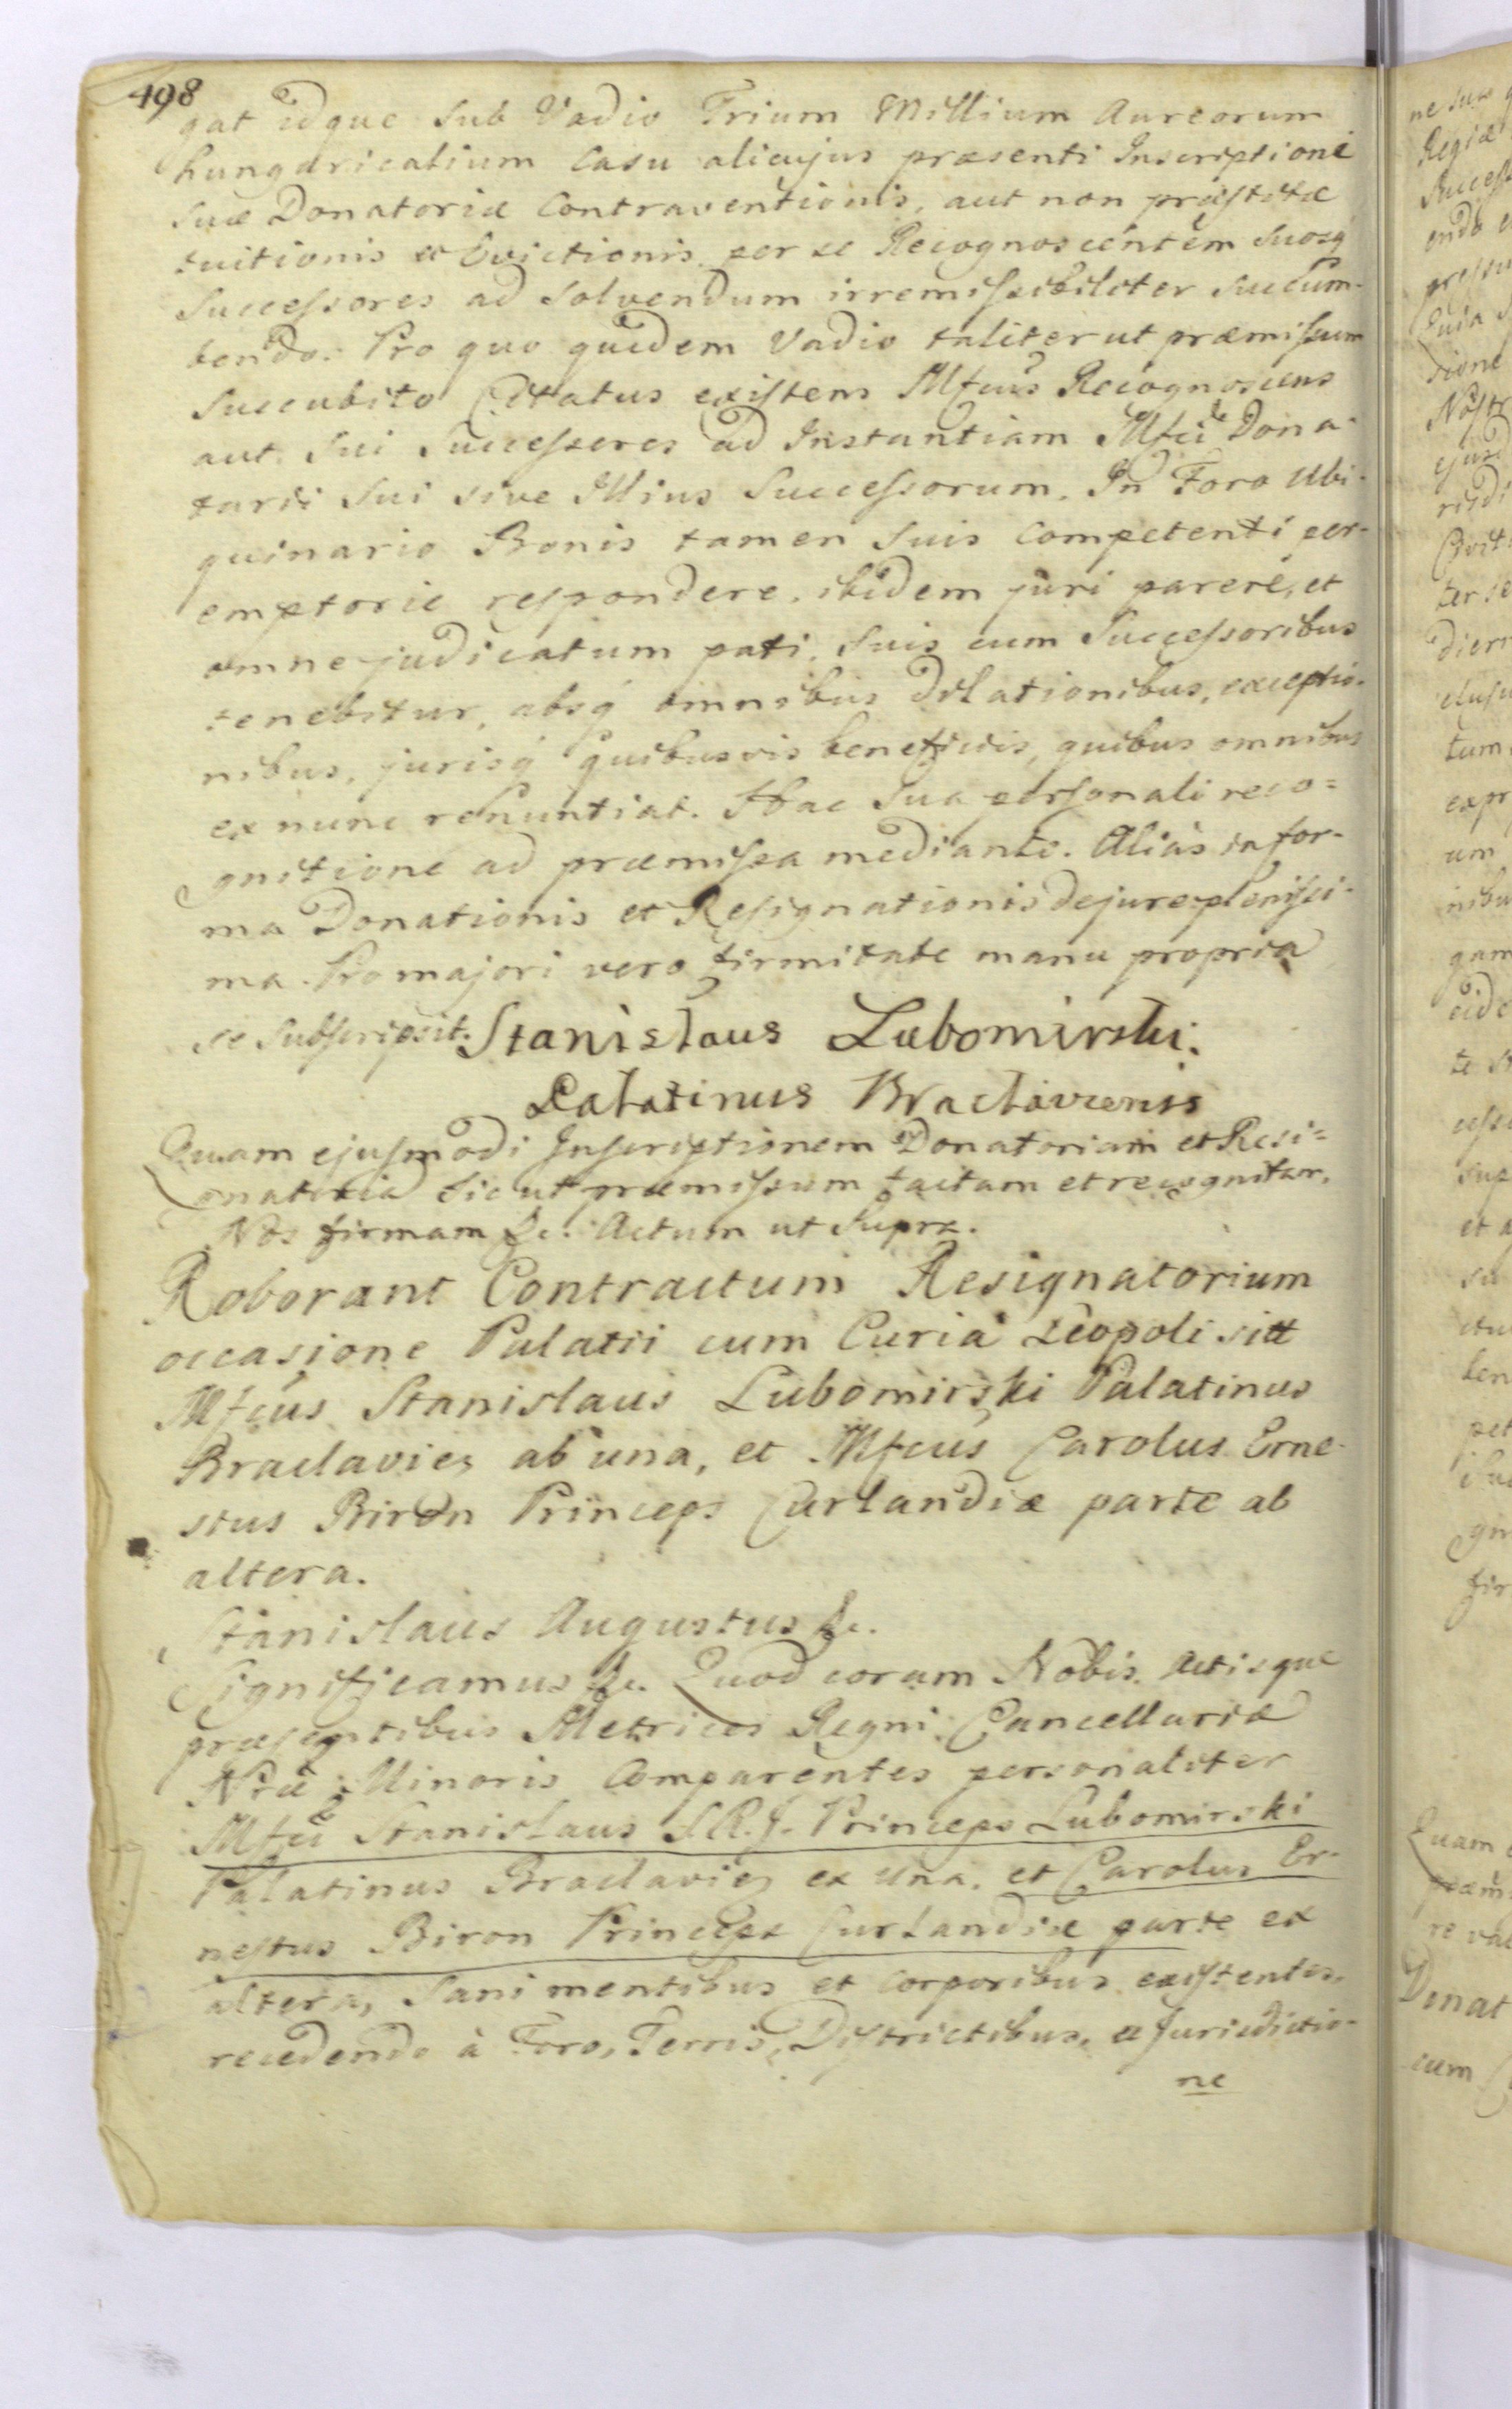 498
gat idque Sub Vadio Trium Millium Aureorum
hungaricalium Casu alicujus præsenti Inscriptioni
suæ Donatoriæ Contraventionis, aut non præstitæ
tuitionis et Evictionis per se Recognoscentem suosq́
Successores ad Solvendum irremissibiliter succum-
bendo. Pro quo quidem Vadio taliter ut præmissum
succubito Citatus existens Mfcus Recognoscens
aut Sui Successores ad Instantiam Mfci Dona-
tarii Sui sive Illius Successorum. In Foro Ubi-
quinario Bonis tamen Suis Competenti per-
emptorie respondere, ibidem juri parere, et
omne judicatum pati, Suis cum Successoribus
tenebitur, absq́ omnibus dilationibus, exceptio-
nibus, jurisq́ quibusvis beneficiis, quibus omnibus
ex nunc renuntiat. Hac Sua personali reco=
gnitione ad præmissa mediante. Alias in for-
ma Donationis et Resignationis de jure plenissi-
ma. Pro majori vero firmitate manu propria
se Subscripsit. Stanislaus Lubomirski.
Palatinus Braclaviensis
Quam ejusmodi Inscriptionem Donatoriam et Resi=
gnatoria sicut præmissum factam et recognitam,
Nos firmam &c. Actum ut Supra.
Roborant Contractum Resignatorium
occasione Palatii cum Curia Leopoli sitt
Mfcus Stanislaus Lubomirski Palatinus
Braclavien ab una, et Mfcus Carolus Erne-
stus Biron Princeps Curlandiæ parte ab
altera.
Stanislaus Augustus &c.
Significamus &c. Quod coram Nobis Actisque
præsentibus Metrices Regni Cancellariæ
Nræ Minoris Comparentes personaliter
Mfci Stanislaus S.R.J. Princeps Lubomirski
Palatinus Braclavien ex una, et Carolus Er-
nestus Biron Princeps Curlandiæ parte ex
altera, Sani mentibus et corporibus existentes,
recedendo à Foro, Terris, Districtibus, et Jurisdictio-
ne